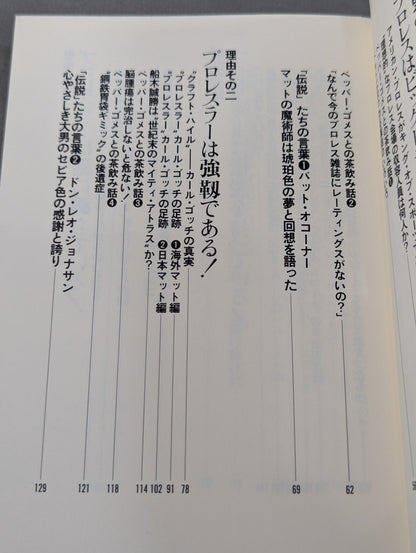 ペッパー・ゴメスとの茶飲み話❷
「なんで今のプロレス雑誌にレーティングスがないの？」
62
「伝説」たちの言葉❶パット・オコーナー
マットの魔術師は琥珀色の夢と回想を語った
69
理由その二
プロレスラーは強靱である！
“クラフト・ハイル”――カール・ゴッチの真実
78
“プロレスラー”カール・ゴッチの足跡 ❶海外マット編
91
“プロレスラー”カール・ゴッチの足跡 ❷日本マット編
102
船木誠勝は“世紀末のマイティ・アトラス”か？
114
ペッパー・ゴメスとの茶飲み話❸
脳腫瘍は完治しないと危ない！
118
ペッパー・ゴメスとの茶飲み話❹
“鋼鉄胃袋ギミック”の後遺症
121
「伝説」たちの言葉❷ ドン・レオ・ジョナサン
心やさしき大男のセピア色の感謝と誇り
129